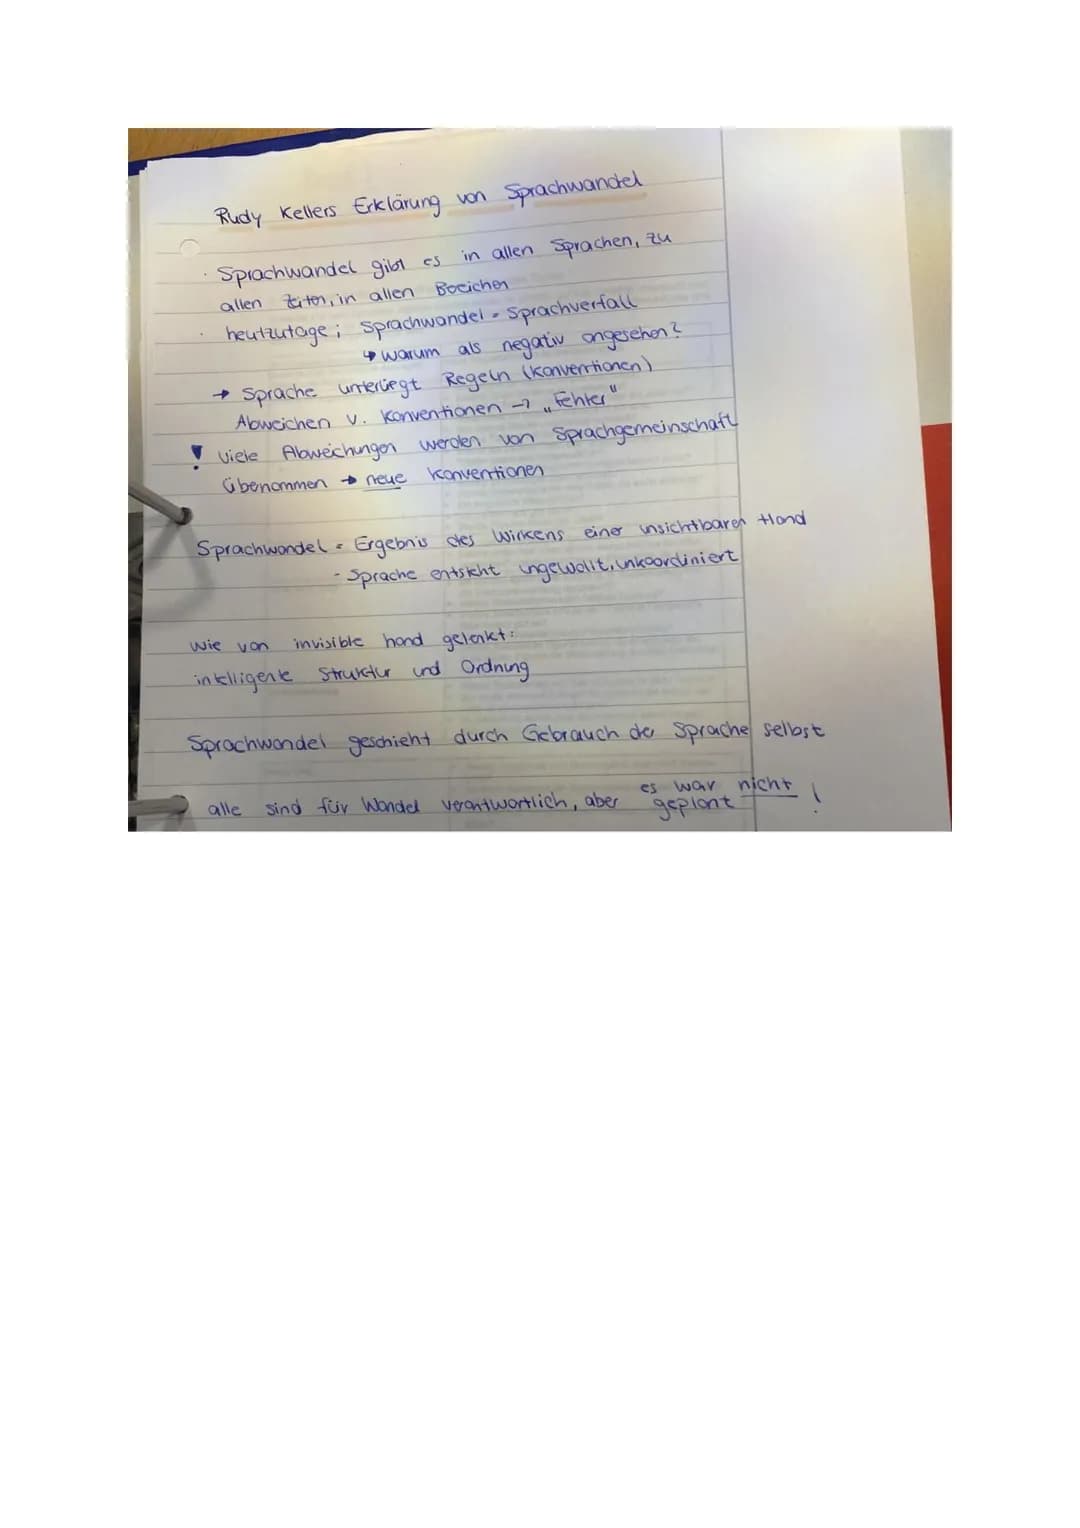 Rudy Kellers Erklärung von Sprachwandel
· Sprachwandel gibt es in allen Sprachen, zu
allen Zeiten, in allen Bereichen
· heutzutage; Sprachwandel = Sprachverfall
↳ warum als negativ angesehen?
→ Sprache unterliegt Regeln (Konventionen)
Abweichen v. Konventionen → „Fehler"
! viele Abweichungen werden von Sprachgemeinschaft
übernommen → neue Konventionen
Sprachwandel = Ergebnis des Wirkens einer unsichtbaren Hand
- Sprache entsteht ungewollt, unkoordiniert
Wie von invisible hand gelenkt:
intelligente Struktur und Ordnung
Sprachwandel geschieht durch Gebrauch der Sprache selbst
alle sind für Wandel verantwortlich, aber es war nicht
geplant !